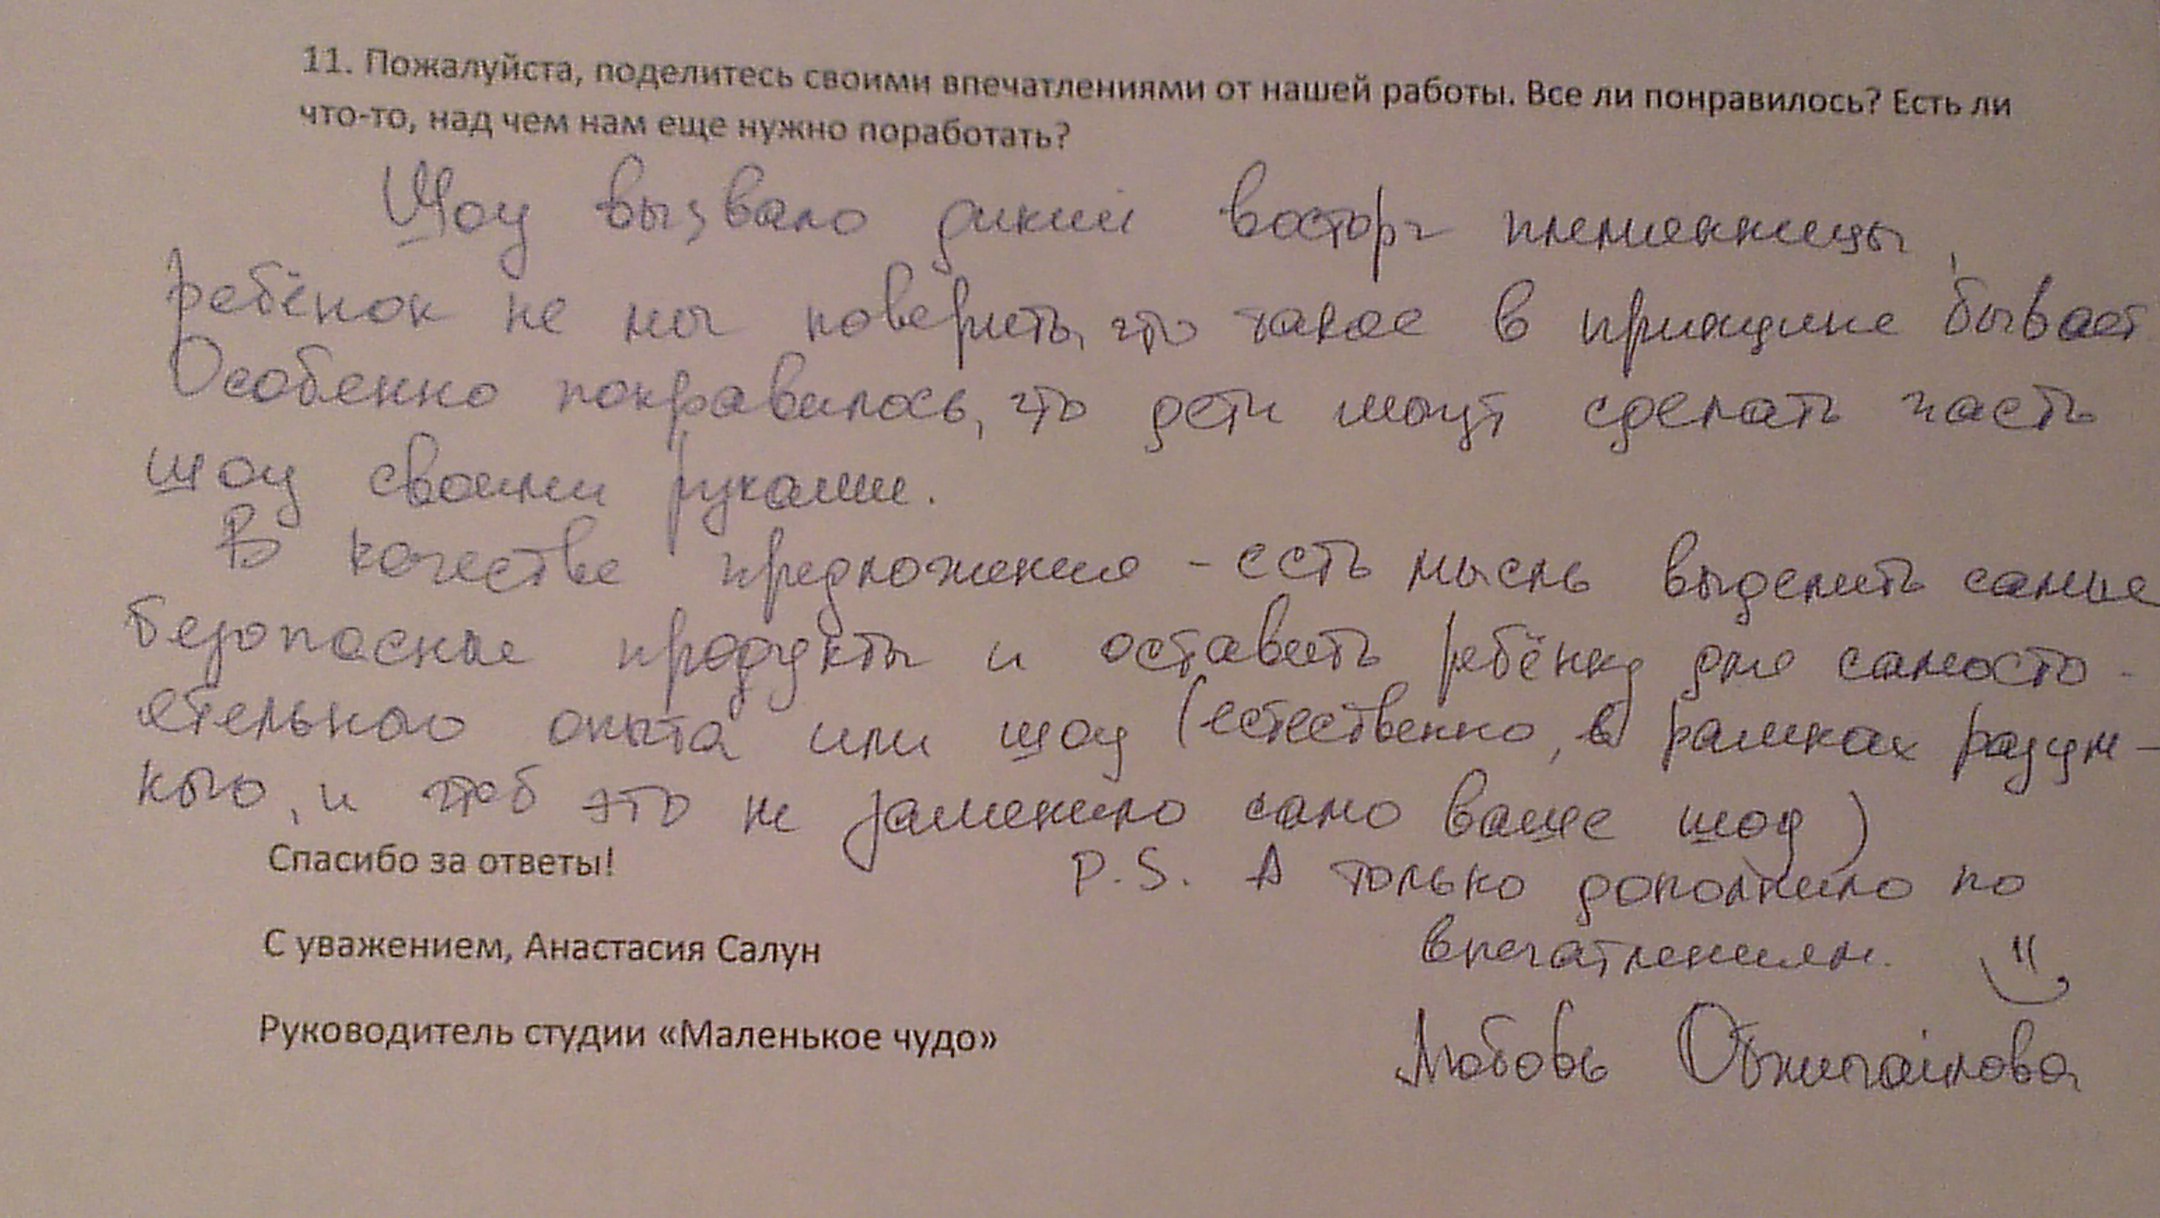 11. Пожалуйста, поделитесь своими впечатлениями от нашей работы. Все ли понравилось? Есть ли
что-то, над чем нам еще нужно поработать?
Шоу вызвало дикий восторг племянницы,
ребёнок не мог поверить, что такое в принципе бывает
Особенно понравилось, что дети могут сделать часть
шоу своими руками.
В качестве предложения - есть мысль выделить самые
безопасные продукты и оставить ребёнку для самосто-
ятельного опыта или шоу (естественно, в рамках разум-
ного, и чтоб это не заменило само ваше шоу)
Спасибо за ответы!
P.S. А только дополнило по
впечатлениям.
С уважением, Анастасия Салун
Руководитель студии «Маленькое чудо»
Любовь